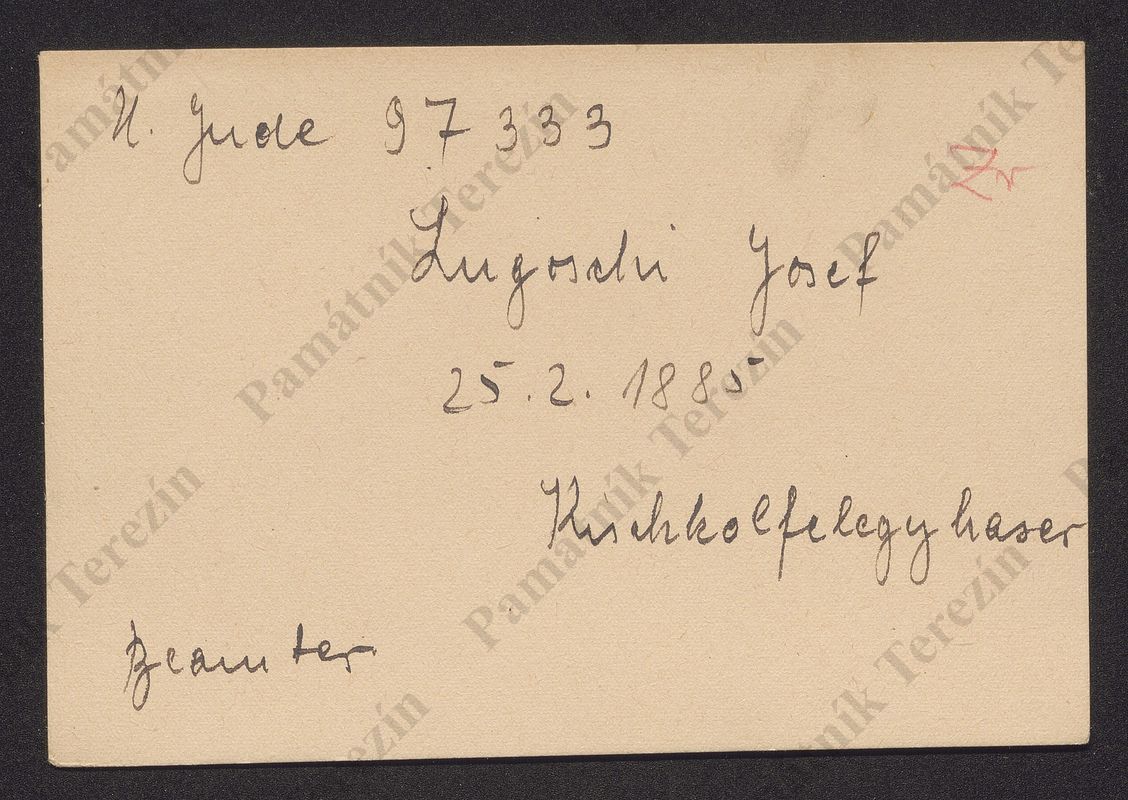 U. Jude 97 333
Lugoschi Josef
25.2.1885
Kischkolfelegyhaser
Beamter
Památník Terezín